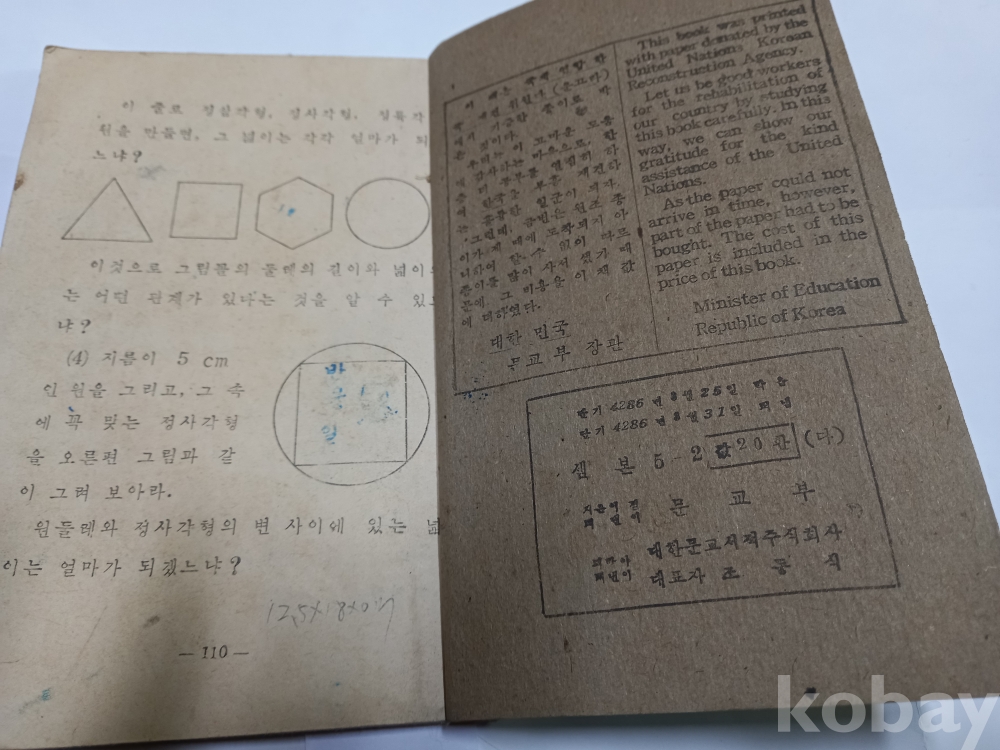 이 줄로 정삼각형, 정사각형, 정륙각
원을 만들면, 그 넓이는 각각 얼마가 되
느냐?
이것으로 그림들의 둘레의 길이와 넓이
는 어떤 관계가 있다는 것을 알 수 있
냐?
(4) 지름이 5 cm
인 원을 그리고, 그 속
에 꼭 맞는 정사각형
을 오른편 그림과 같
이 그려 보아라.
원둘레와 정사각형의 변 사이에 있는 넓
이는 얼마가 되겠느냐?
반
공
일
— 110 —
이 책는 국제 연합 한
국 재건 위원단 (운끄라)
에서 기증한 종이로 박
은 것이다.
우리는 이 고마운 도움
을 감사하는 마음으로, 한
층 더 공부를 열심히 하
여, 한국을 부흥 재건하
는 훌륭한 일군이 되자.
그런데, 금번은 원조 종
이가 제 때에 도착되지 아
니하여 할 수 없이 따로
종이를 많이 사서 썼기 때
문에, 그 비용을 이 책 값
에 더하였다.
대한 민국
문교부 장관
This book was printed
with paper donated by the
United Nations Korean
Reconstruction Agency.
Let us be good workers
for the rehabilitation of
our country by studying
this book carefully. In this
way, we can show our
gratitude for the kind
assistance of the United
Nations.
As the paper could not
arrive in time, however,
part of the paper had to be
bought. The cost of this
paper is included in the
price of this book.
Minister of Education
Republic of Korea
단기 4286 년 8 월 25 일 박음
단기 4286 년 8 월 31 일 펴냄
셈 본 5-2 값 20 환 (다)
지은이 겸
펴낸이 문교부
박은이
펴낸이 대한문교서적주식회사
대표자 조 동 식
kobay